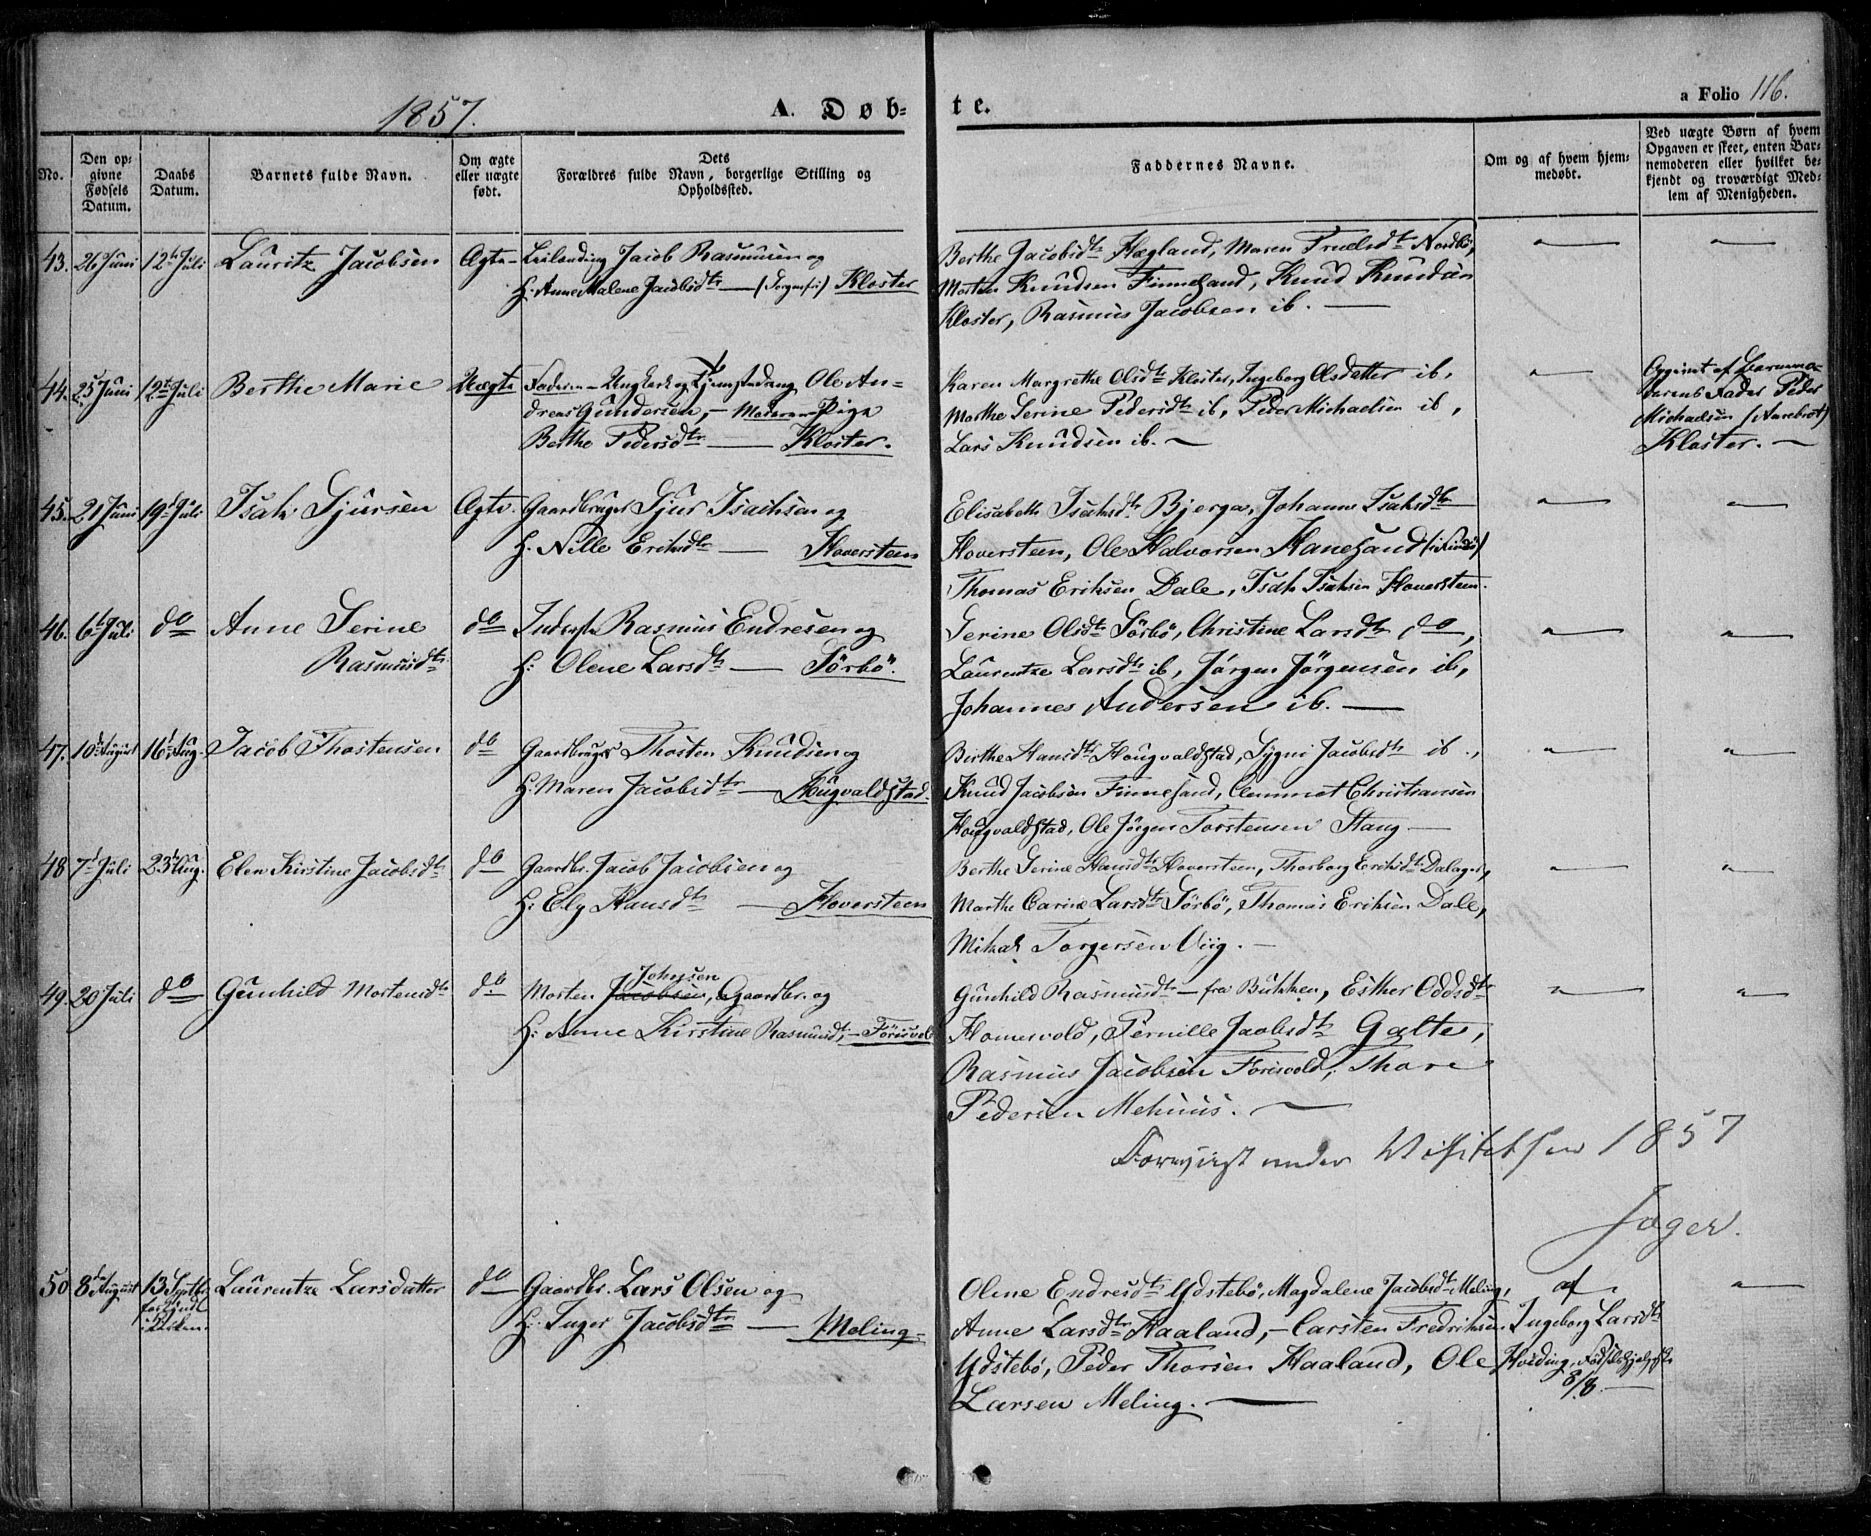 1857.
A. Døb- te.
a Folio 116.
No.
Den op-
givne
Fødsels
Datum.
Daabs
Datum.
Barnets fulde Navn.
Om ægte
eller uægte
født.
Dets
Forældres fulde Navn, borgerlige Stilling og
Opholdssted.
Faddernes Navne.
Om og af hvem hjem-
medøbt.
Ved uægte Børn af hvem
Opgaven er skeet, enten Bar-
nemoderen eller hvilket be-
kjendt og troværdigt Med-
lem af Menigheden.
43. 26 Juni 12te Juli Lauritz Jacobsen Ægte Leilending Jacob Rasmusen og
H: Anne Malene Jacobsdtr — (Sorgenfri) Kloster
Berthe Jacobsdtr Hægland, Maren Truelsdtr Nordbö,
Morten Knudsen Finnesand, Knud Knudsen
Kloster, Rasmus Jacobsen ib. —
44. 25 Juni 12te Juli Berthe Marie Uægte Faderen — Ungkarl og Ole An-
dreas Gundersen, — Moderen Pige
Berthe Pedersdtr — Kloster.
Karen Margrethe Olsdtr Kloster, Ingeborg Olsdatter ib,
Marthe Serine Pedersdtr ib, Peder Michaelsen ib,
Lars Knudsen ib. —
Opgivet af Barnemo-
derens Fader Peder
Michaelsen
Kloster. —
45. 21 Juni 19de Juli Isak Sjursen Ægte. Gaardbruger Sjur Isachsen og
H. Nille Eriksdtr — Hoversteen
Elisabeth Isaksdtr Bjerga, Johanne Isaksdtr
Hoversteen, Ole Halvorsen Hanesand (i Findö)
Thomas Eriksen Dale, Isak Isaksen Hoversteen.
46. 6te Juli do Anne Serine
Rasmusdtr
do Inderste Rasmus Endresen og
H: Olene Larsdtr — Sörbö.
Serine Olsdtr Sörbö, Christine Larsdtr do,
Laurentze Larsdtr ib, Jörgen Jörgensen ib,
Johannes Andersen ib. —
47. 10de August 16de Aug. Jacob Thostensen do Gaardbruger Thosten Knudsen og
H: Maren Jacobsdtr — Hougvaldstad.
Birthe Hansdtr Hougvaldstad, Sygni Jacobsdtr ib.,
Knud Jacobsen Finnesand, Clemmet Christiansen
Hougvaldstad, Ole Jörgen Torstensen Stang —
48 7de Juli 23de Aug. Elen Kirstine Jacobsdtr do Gaardbr. Jacob Jacobsen og
H: Ely Hansdtr — Hoversteen
Berthe Serine Hansdtr Hoversteen, Thorborg Eriksdtr Dalager,
Marthe Carine Larsdtr Sörbö, Thomas Eriksen Dale,
Mikal Torgersen Viig. —
49. 20 Juli do Gunhild Mortensdtr do Morten Jacobsen Johnsen, Gaardbr. og
H: Anne Kirstine Rasmusdtr, — Förisvold
Gunhild Rasmusdtr — fra Bukken, Esther Oddsdtr
Homersvold, Pernille Jacobsdtr Galte,
Rasmus Jacobsen Forisvold, Thore
Pedersen Mehuus. —
Forevist under Visitatsen 1857
Jæger.
50 8de August 13 Septbr
i Kirken.
Laurentze Larsdatter do Gaardbr. Lars Olsen og
H. Inger Jacobsdtr — Meling
Olene Endresdtr Ydstebö, Magdalene Jacobsdtr Meling,
Anne Larsdtr Haaland, — Carsten Fredriksen
Ydstebö, Peder Thorsen Haaland, Ole
Larsen Meling. —
af
Ingeborg Larsdtr
Hviding,
8/8. —